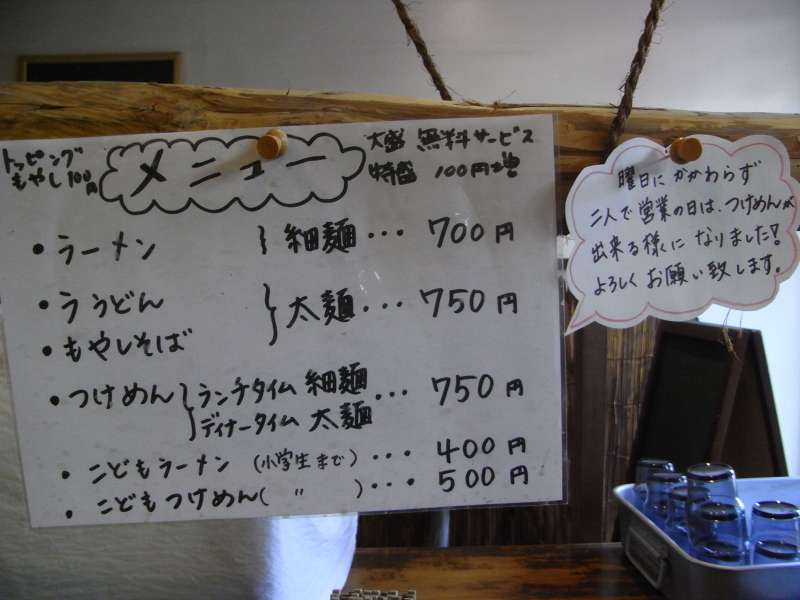 トッピング
もやし100円
メニュー
大盛 無料サービス
特盛 100円増
・ラーメン } 細麺・・・700円
・ううどん
・もやしそば } 太麺・・・750円
・つけめん { ランチタイム 細麺
ディナータイム 太麺 ・・・750円
・こどもラーメン (小学生まで)・・・400円
・こどもつけめん( 〃 )・・・500円
曜日にかかわらず
二人で営業の日は、つけめんが
出来る様になりました!
よろしくお願い致します。